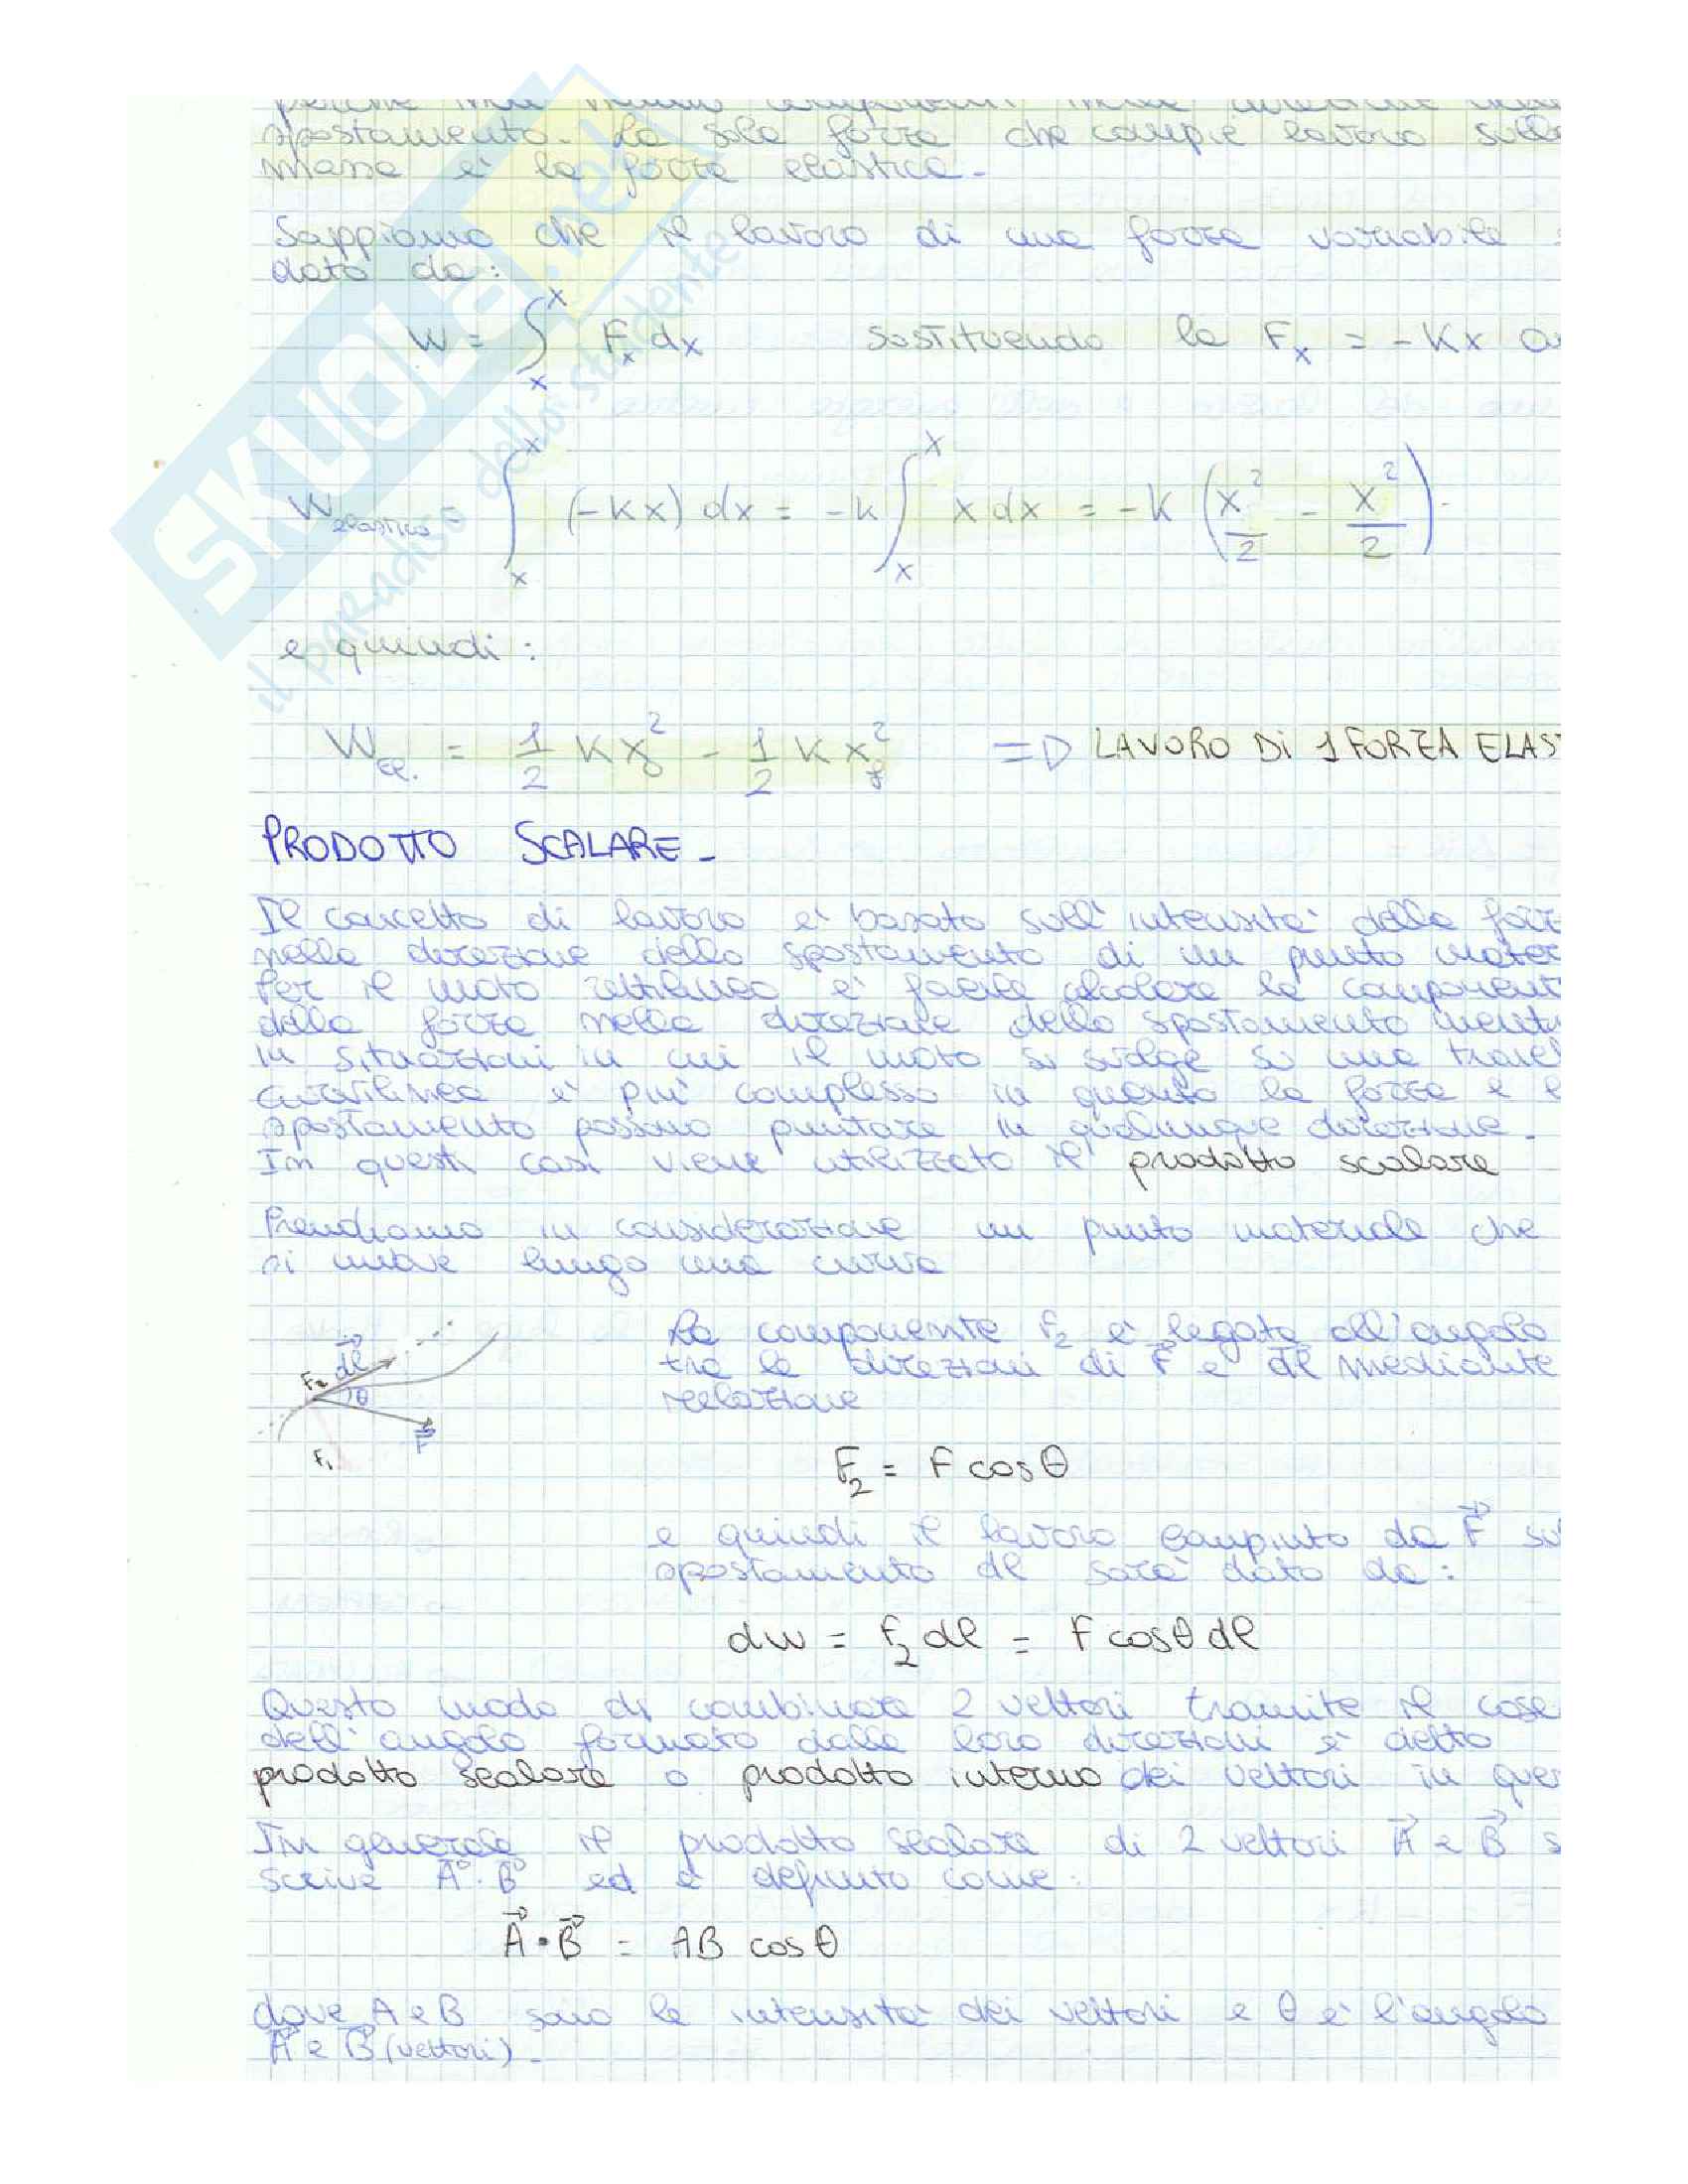 spostamento. La sola forza che compie lavoro sulla
massa è la forza elastica.
Sappiamo che il lavoro di una forza variabile
dato da:
W = ∫ₓˣ Fₓ dx sostituendo la Fₓ = -Kx
W elastico = ∫ₓˣ (-Kx) dx = -k ∫ₓˣ x dx = -K (x²/2 - x²/2)
e quindi:
W el. = 1/2 K x₀² - 1/2 K x_f² => LAVORO DI 1 FORZA ELAS
PRODOTTO SCALARE -
Il concetto di lavoro è basato sull'intensità della forz
nella direzione dello spostamento di un punto mater
Per il moto rettilineo è facile calcolare la component
della forza nella direzione dello spostamento ment
in situazioni in cui il moto si svolge su una traie
curvilinea è più complesso in quanto la forza e
spostamento possono puntare in qualunque direzione.
In questi casi viene utilizzato il prodotto scalare
Prendiamo in considerazione un punto materiale che
si muove lungo una curva
La componente F₂ è legata all'angolo
tra le direzioni di F⃗ e dl⃗ mediante
relazione
F₂ dl⃗
θ
F⃗
F₁
F₂ = F cosθ
e quindi il lavoro compiuto da F⃗ su
spostamento dl sarà dato da:
dw = F₂ dl = F cosθ dl
Questo modo di combinare 2 vettori tramite il cose
dell'angolo formato dalle loro direzioni è detto
prodotto scalare o prodotto interno dei vettori in ques
In generale il prodotto scalare di 2 vettori A⃗ e B⃗ s
scrive A⃗·B⃗ ed è definito come:
A⃗·B⃗ = AB cosθ
dove A e B sono le intensità dei vettori e θ è l'angolo
A⃗ e B⃗ (vettori).
SKUOLA.net
il paradiso dello studente